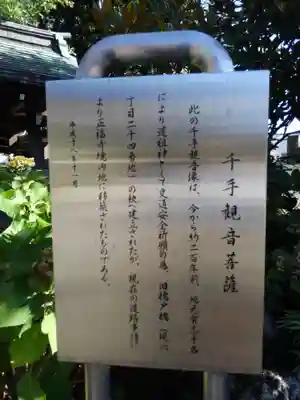 千手観音菩薩
此の千手観音像は、今から約二百年前、地元有志十名
により道祖神として交通安全祈願の為、旧橋戸橋(現
丁目二十四番地)の袂へ建立されたが、現在の道路事情
より三福寺境内地に移築されたものである。
平成十八年十一月